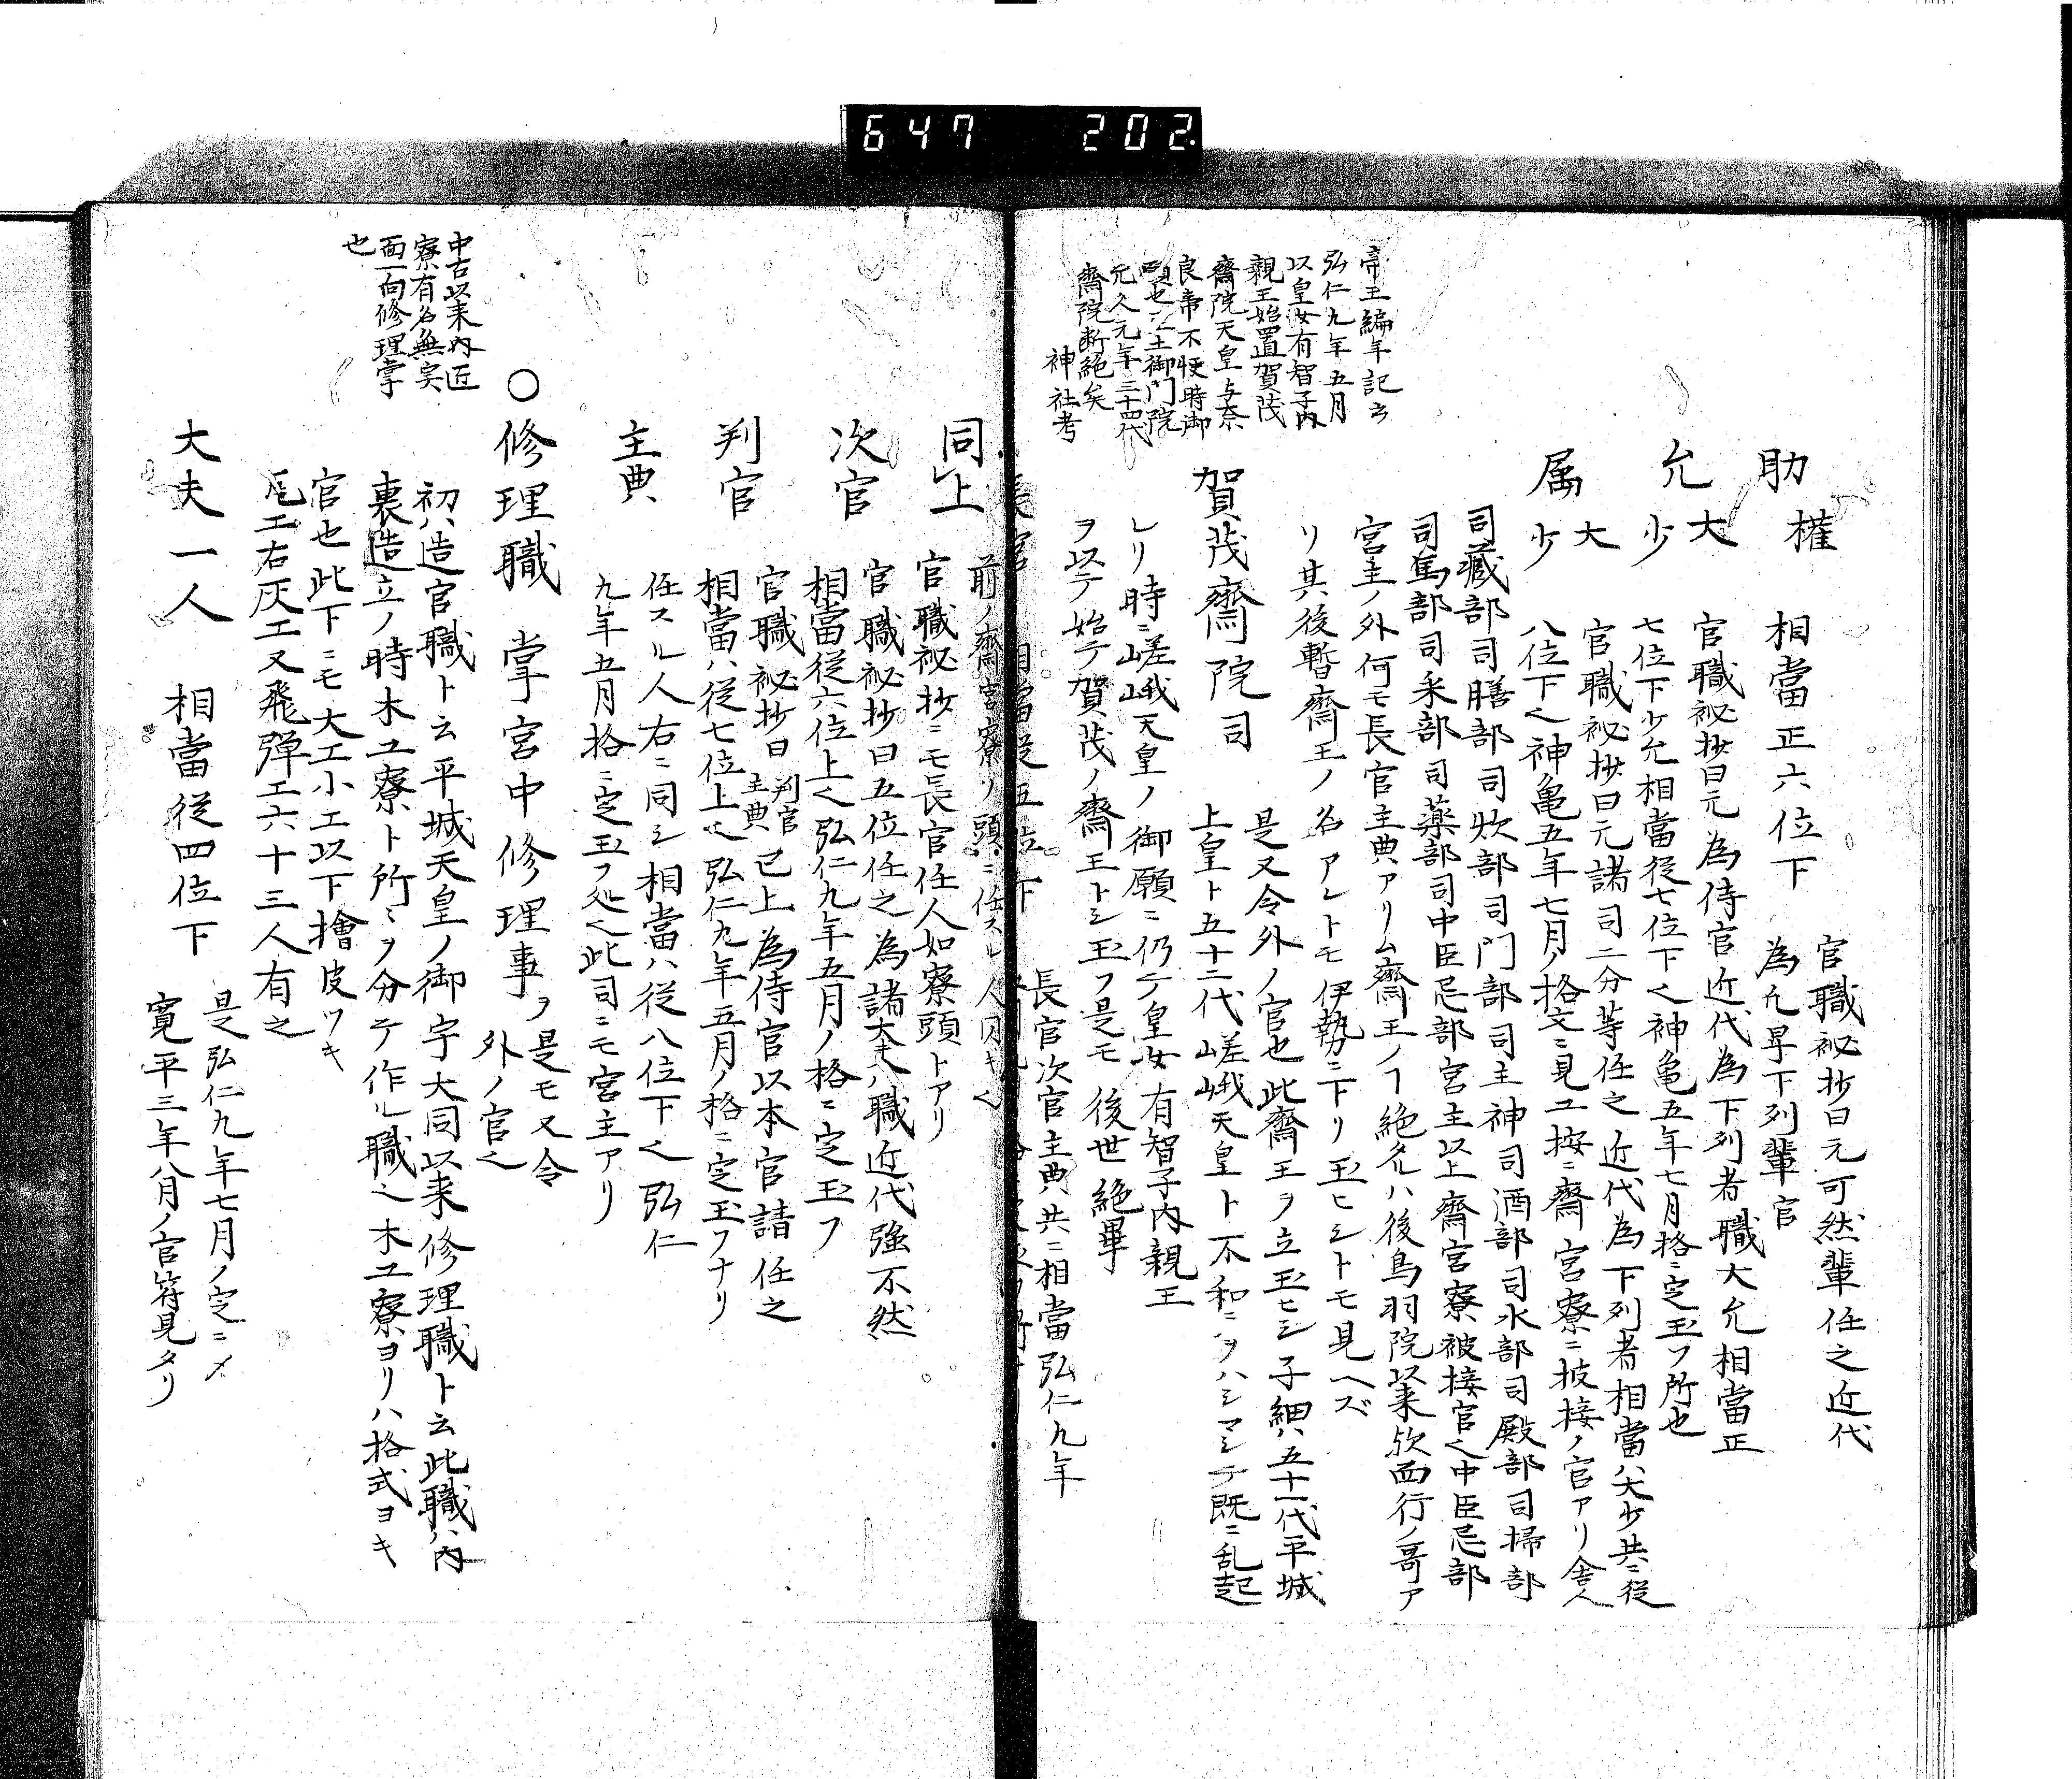 647 202.
助 権 相當正六位下
官職祕抄曰元可然輩任之近代
為凡卑下列輩官
允 大 少
官職祕抄曰元為侍官近代為下列者職大允相當正
七位下少允相當従七位下〻神亀五年七月格ニ定玉フ所也
属 大 少
官職祕抄曰元諸司二分等任之近代為下列者相當ハ大少共ニ従
八位下〻神亀五年七月ノ格文ニ見ユ按ニ齋宮寮ニ被接ノ官アリ舎人
司藏部司膳部司炊部司門部司主神司酒部司水部司殿部司掃部
司馬部司采部司薬部司中臣忌部宮主以上齋宮寮被接官〻中臣忌部
宮主ノ外何モ長官主典アリム齋王ノヿ絶タルハ後鳥羽院以来欤西行ノ哥ア
リ其後暫齋王ノ名アレトモ伊勢ニ下リ玉ヒシトモ見ヘズ
帝王編年記云
弘仁九年五月
以皇女有智子内
親王始置賀茂
齋院天皇与奈
良帝不快時御
願也云土御門院
元久元年三十四代
齋院断絶矣
神社考
賀茂齋院司
是又令外ノ官也此齋王ヲ立玉ヒシ子細ハ五十一代平城
上皇ト五十二代嵯峨天皇ト不和ニヲハシマシテ既ニ乱起
レリ時ニ嵯峨天皇ノ御願ニ仍テ皇女有智子内親王
ヲ以テ始テ賀茂ノ齋王トシ玉フ是モ後世絶畢
長官次官主典共ニ相當弘仁九年
長官 相當従五位下
前ノ齋宮寮ソ頭ニ任スル人同キ〻
同上
官職祕抄ニモ長官任人如寮頭トアリ
次官
官職祕抄曰五位任之為諸大夫職近代強不然
相當従六位上〻弘仁九年五月ノ格ニ定玉フ
判官
官職祕抄曰 判官 主典 已上為侍官以本官請任之
相當ハ従七位上〻弘仁九年五月ノ格ニ定玉フナリ
主典
任スル人右ニ同シ相當ハ従八位下〻弘仁
九年五月格ニ定玉フ処〻此司ニモ宮主アリ
○修理職 掌宮中修理事ヲ
是モ又令
外ノ官〻
中古以来内匠
寮有名無実
面一向修理掌
也
初ハ造官職ト云平城天皇ノ御宇大同以来修理職ト云此職ハ内
裏造立ノ時木工寮ト所〻ヲ分テ作ル職〻木工寮ヨリハ格式ヨキ
官也此下ニモ大工小工以下檜皮ツキ
瓦工石灰工又飛弾工六十三人有之
大夫一人 相當従四位下
是弘仁九年七月ノ定ニメ
寛平三年八月ノ官符見タリ